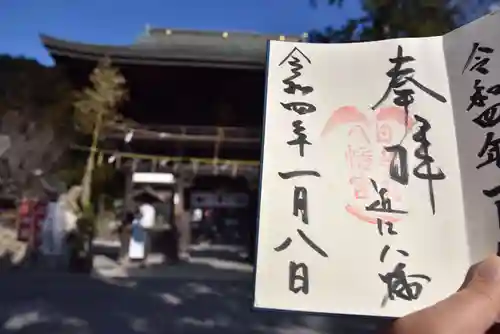 令和四年一
奉拝
近江八幡
八幡宮
令和四年一月八日